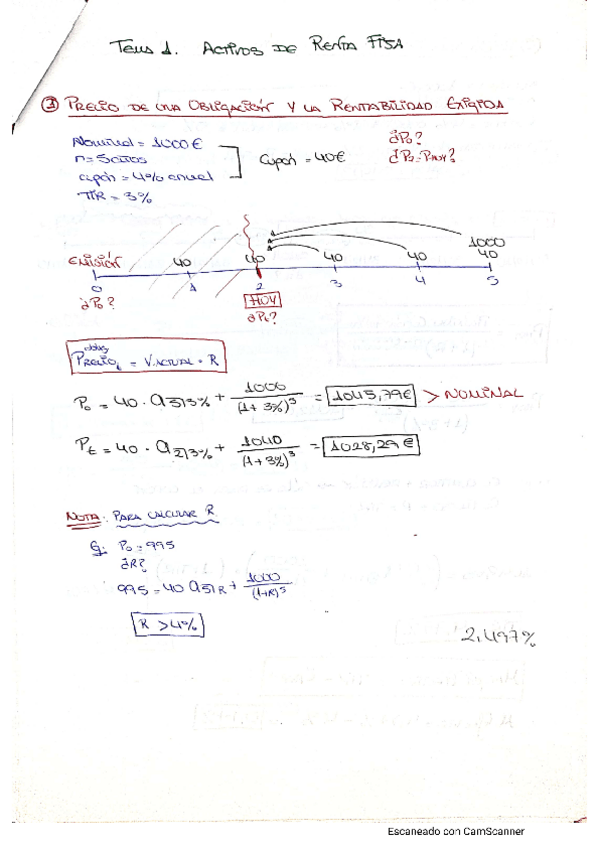 Tema 1. Activos de Renta Fija
① Precio de una Obligación y la Rentabilidad Exigida
Nominal = 1000€
n = 5 años
cupón = 4% anual
TIR = 3%
Cupón = 40€
¿P₀?
¿P₂ = PHOY?
Emisión 40 40 40 40 1000
40
0 1 2 3 4 5
¿P₀?
HOY
¿Pt?
Precio t = V.Actual = R
P₀ = 40 · a5┐3% + 1000/(1+3%)⁵ = 1045,79€ > NOMINAL
Pt = 40 · a2┐3% + 1040/(1+3%)³ = 1028,29€
Nota: Para calcular R
Ej: P₀ = 995
¿R?
995 = 40 a5┐R + 1000/(1+R)⁵
R > 4%
2,497%
Escaneado con CamScanner